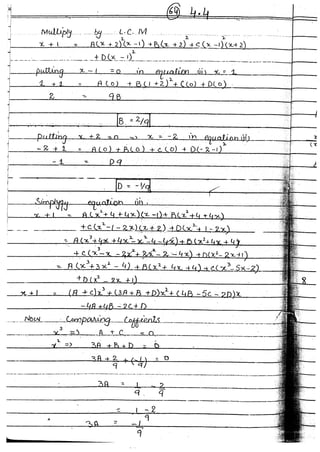 69 4.4
Multiply by L.C.M
x + 1 = A(x + 2)²(x - 1) + B(x + 2)² + C(x - 1)²(x+2)
+ D(x - 1)²
putting x - 1 = 0 in equation (ii) x = 1
1 + 1 = A(0) + B(1+2)² + C(0) + D(0)
2 = 9B
B = 2/9
putting x + 2 = 0 => x = -2 in equation (ii)
-2 + 1 = A(0) + B(0) + C(0) + D(-2-1)²
-1 = D9
D = -1/9
Simplify equation (ii)
x + 1 = A(x²+4+4x)(x-1) + B(x²+4+4x)
+C(x²+1-2x)(x+2) + D(x²+1-2x)
= A(x³+4x+4x²-x²-4-4x) + B(x²+4x+4)
+C(x³+x-2x²+2x²+2-4x) + D(x²-2x+1)
= A(x³+3x²-4) + B(x²+4x+4) + C(x³-5x-2)
+D(x²-2x+1)
x+1 = (A+C)x³ + (3A+B+D)x² + (4B-5C-2D)x
-4A+4B-2C+D
Now Comparing Coffients
x³ => A + C = 0
x² => 3A + B + D = 0
3A + 2/9 + (-1/9) = 0
3A = 1/9 - 2/9
= 1 - 2 / 9
3A = -1/9
8